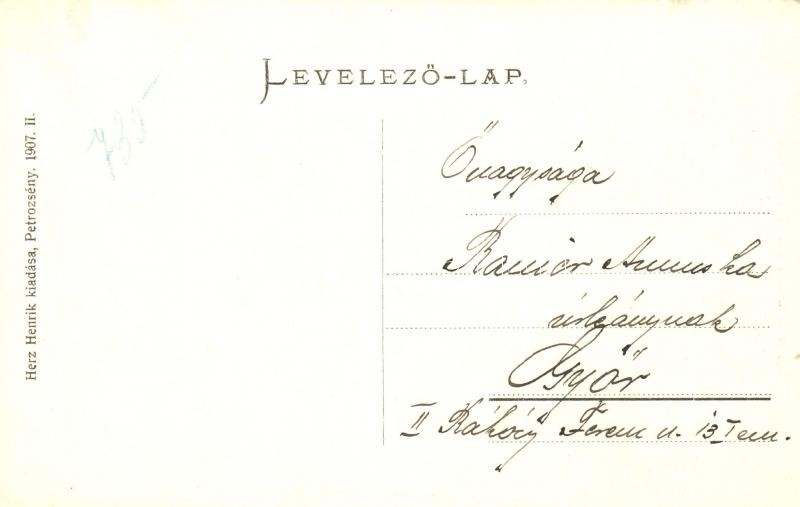 LEVELEZŐ-LAP.
Őnagysága
Annuska
úrleánynak
Győr
II Rákóczy Ferenc u. 13 I em.
Herz Henrik kiadása, Petrozsény. 1907. II.
735